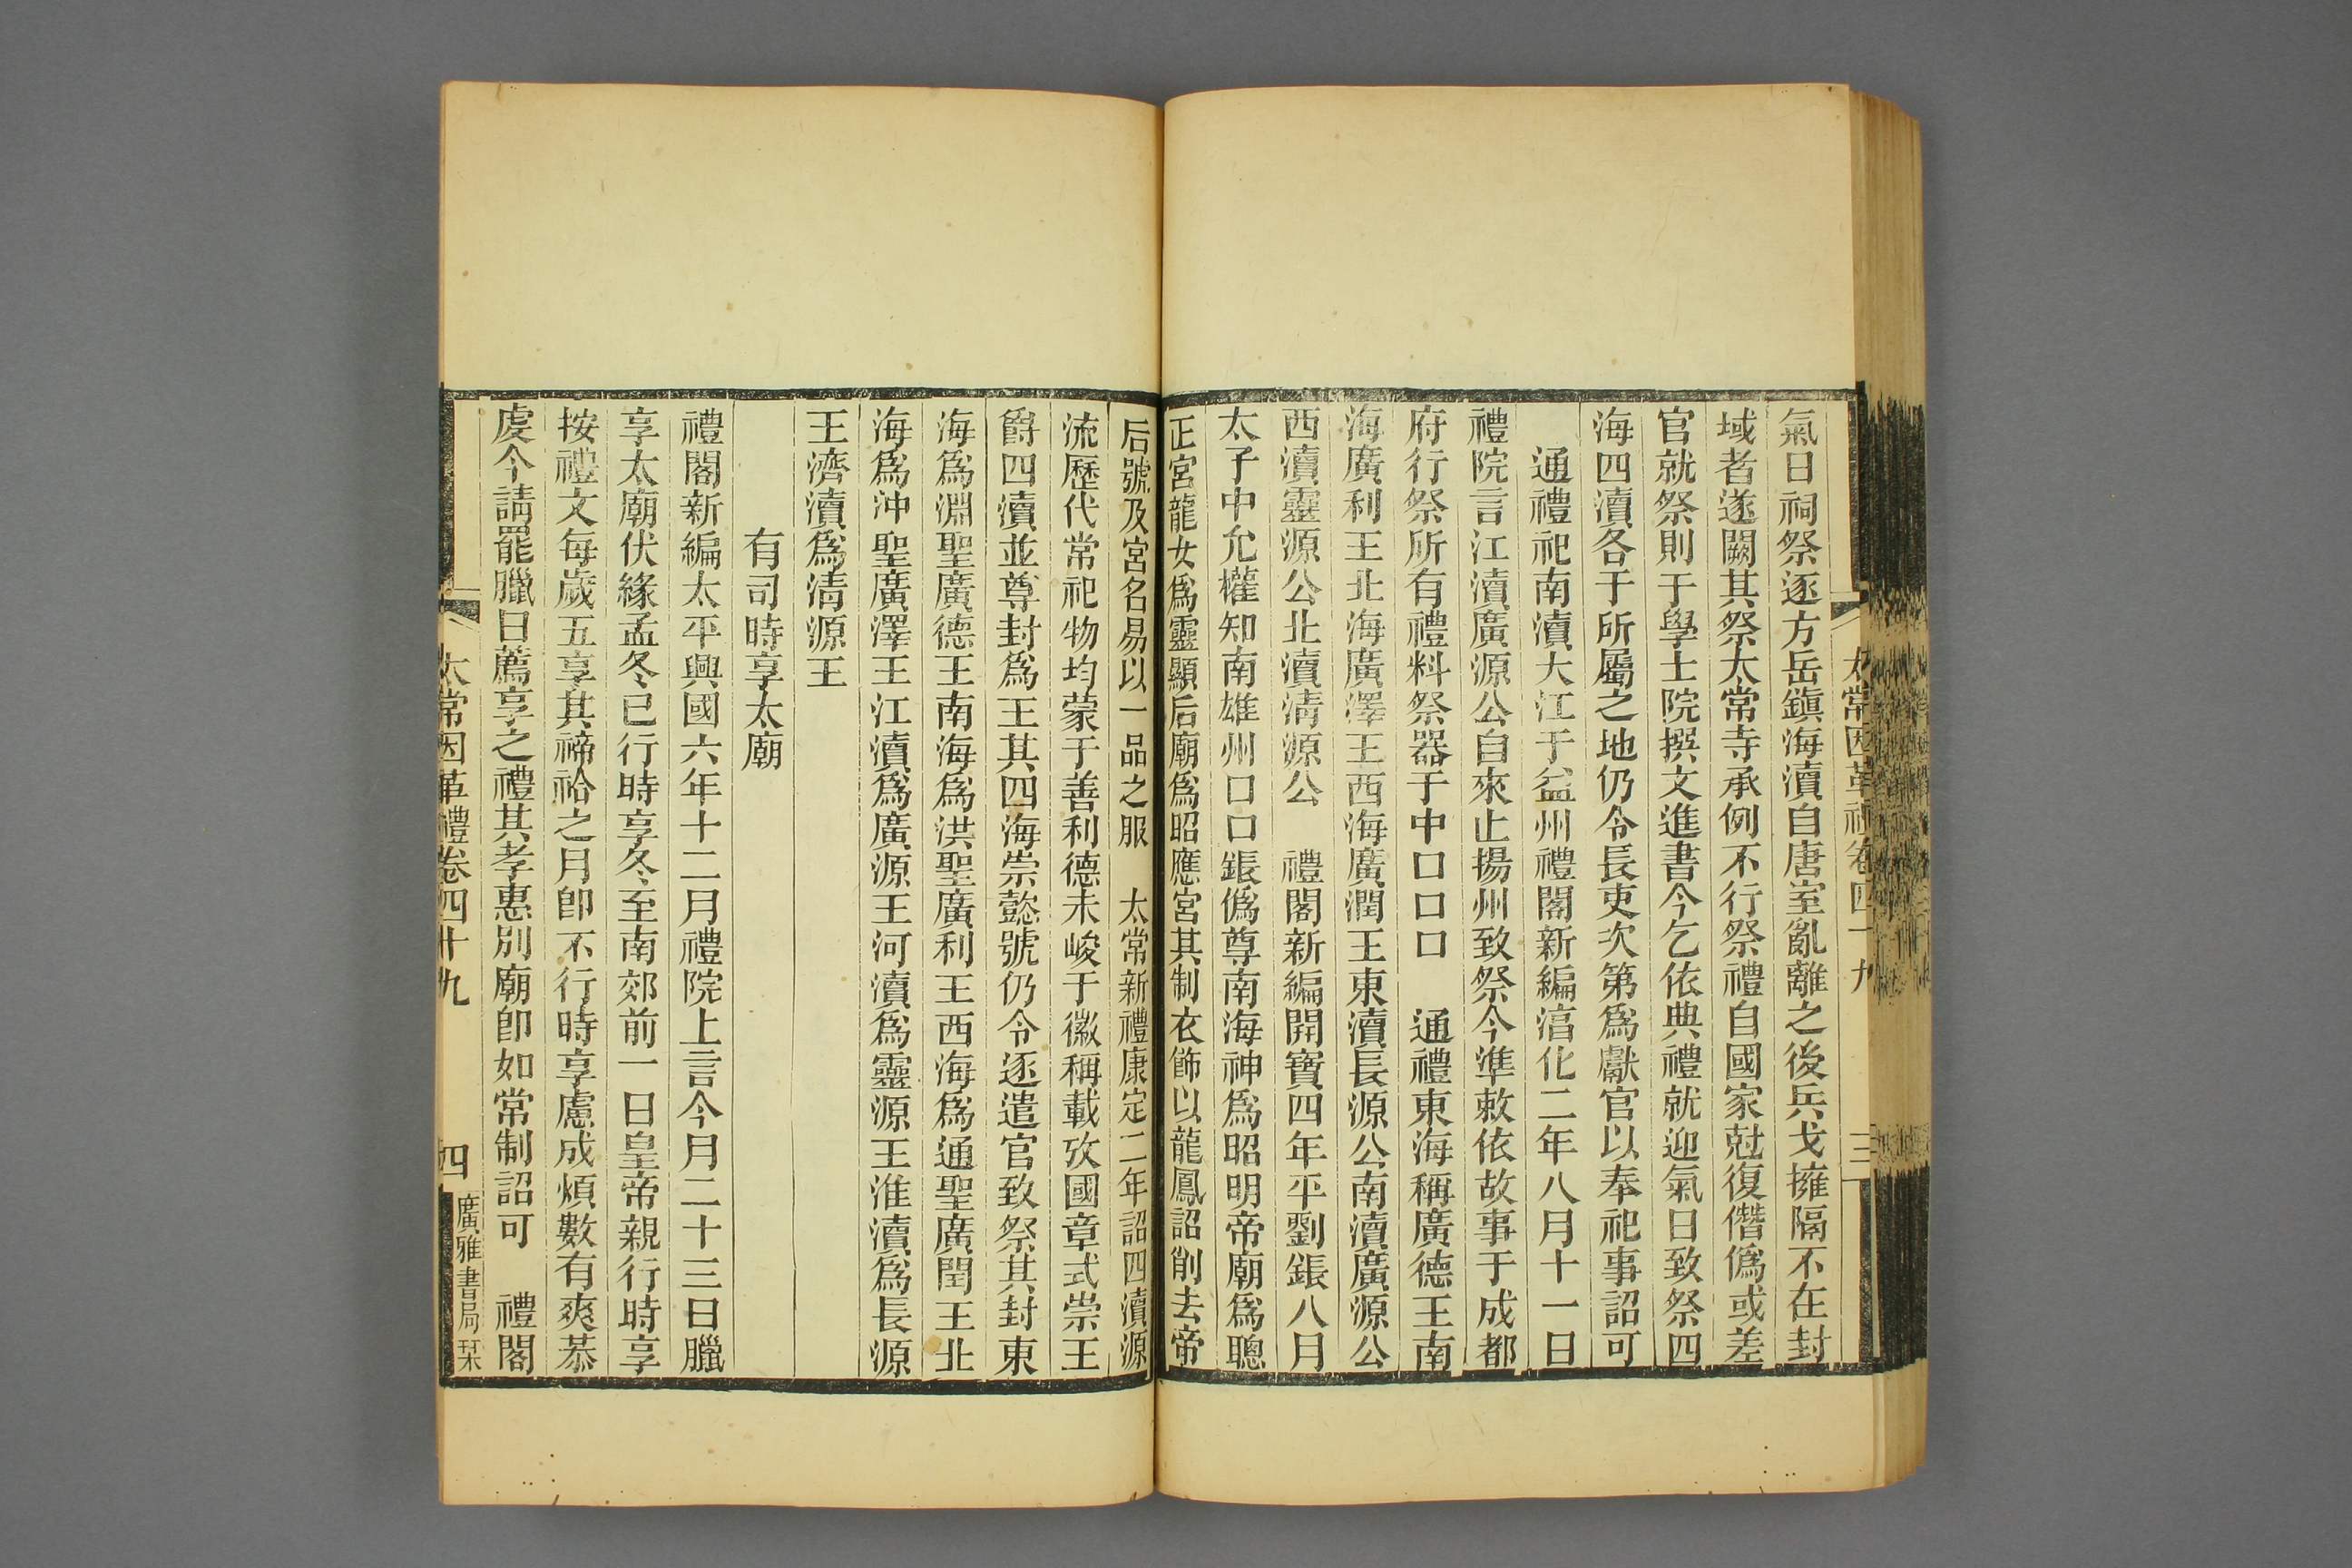 太常因革禮卷四十九
三
氣日祠祭逐方岳鎭海瀆自唐室亂離之後兵戈擁隔不在封
域者遂闕其祭太常寺承例不行祭禮自國家尅復僭僞或差
官就祭則于學士院撰文進書今乞依典禮就迎氣日致祭四
海四瀆各于所屬之地仍令長吏次第爲獻官以奉祀事詔可
通禮祀南瀆大江于益州禮閣新編淳化二年八月十一日
禮院言江瀆廣源公自來止揚州致祭今準敕依故事于成都
府行祭所有禮料祭器于中口口口　通禮東海稱廣德王南
海廣利王北海廣澤王西海廣潤王東瀆長源公南瀆廣源公
西瀆靈源公北瀆淸源公　禮閣新編開寶四年平劉鋹八月
太子中允權知南雄州口口鋹僞尊南海神爲昭明帝廟爲聰
正宮龍女爲靈顯后廟爲昭應宮其制衣飾以龍鳳詔削去帝
后號及宮名易以一品之服　太常新禮康定二年詔四瀆源
流歷代常祀物均蒙于善利德未峻于徽稱載攷國章式崇王
爵四瀆並尊封爲王其四海崇懿號仍令逐遣官致祭其封東
海爲淵聖廣德王南海爲洪聖廣利王西海爲通聖廣閏王北
海爲沖聖廣澤王江瀆爲廣源王河瀆爲靈源王淮瀆爲長源
王濟瀆爲淸源王
有司時享太廟
禮閣新編太平興國六年十二月禮院上言今月二十三日臘
享太廟伏緣孟冬已行時享冬至南郊前一日皇帝親行時享
按禮文每歲五享其禘祫之月卽不行時享慮成煩數有爽恭
虔今請罷臘日薦享之禮其孝惠別廟卽如常制詔可　禮閣
太常因革禮卷四十九
四
廣雅書局栞